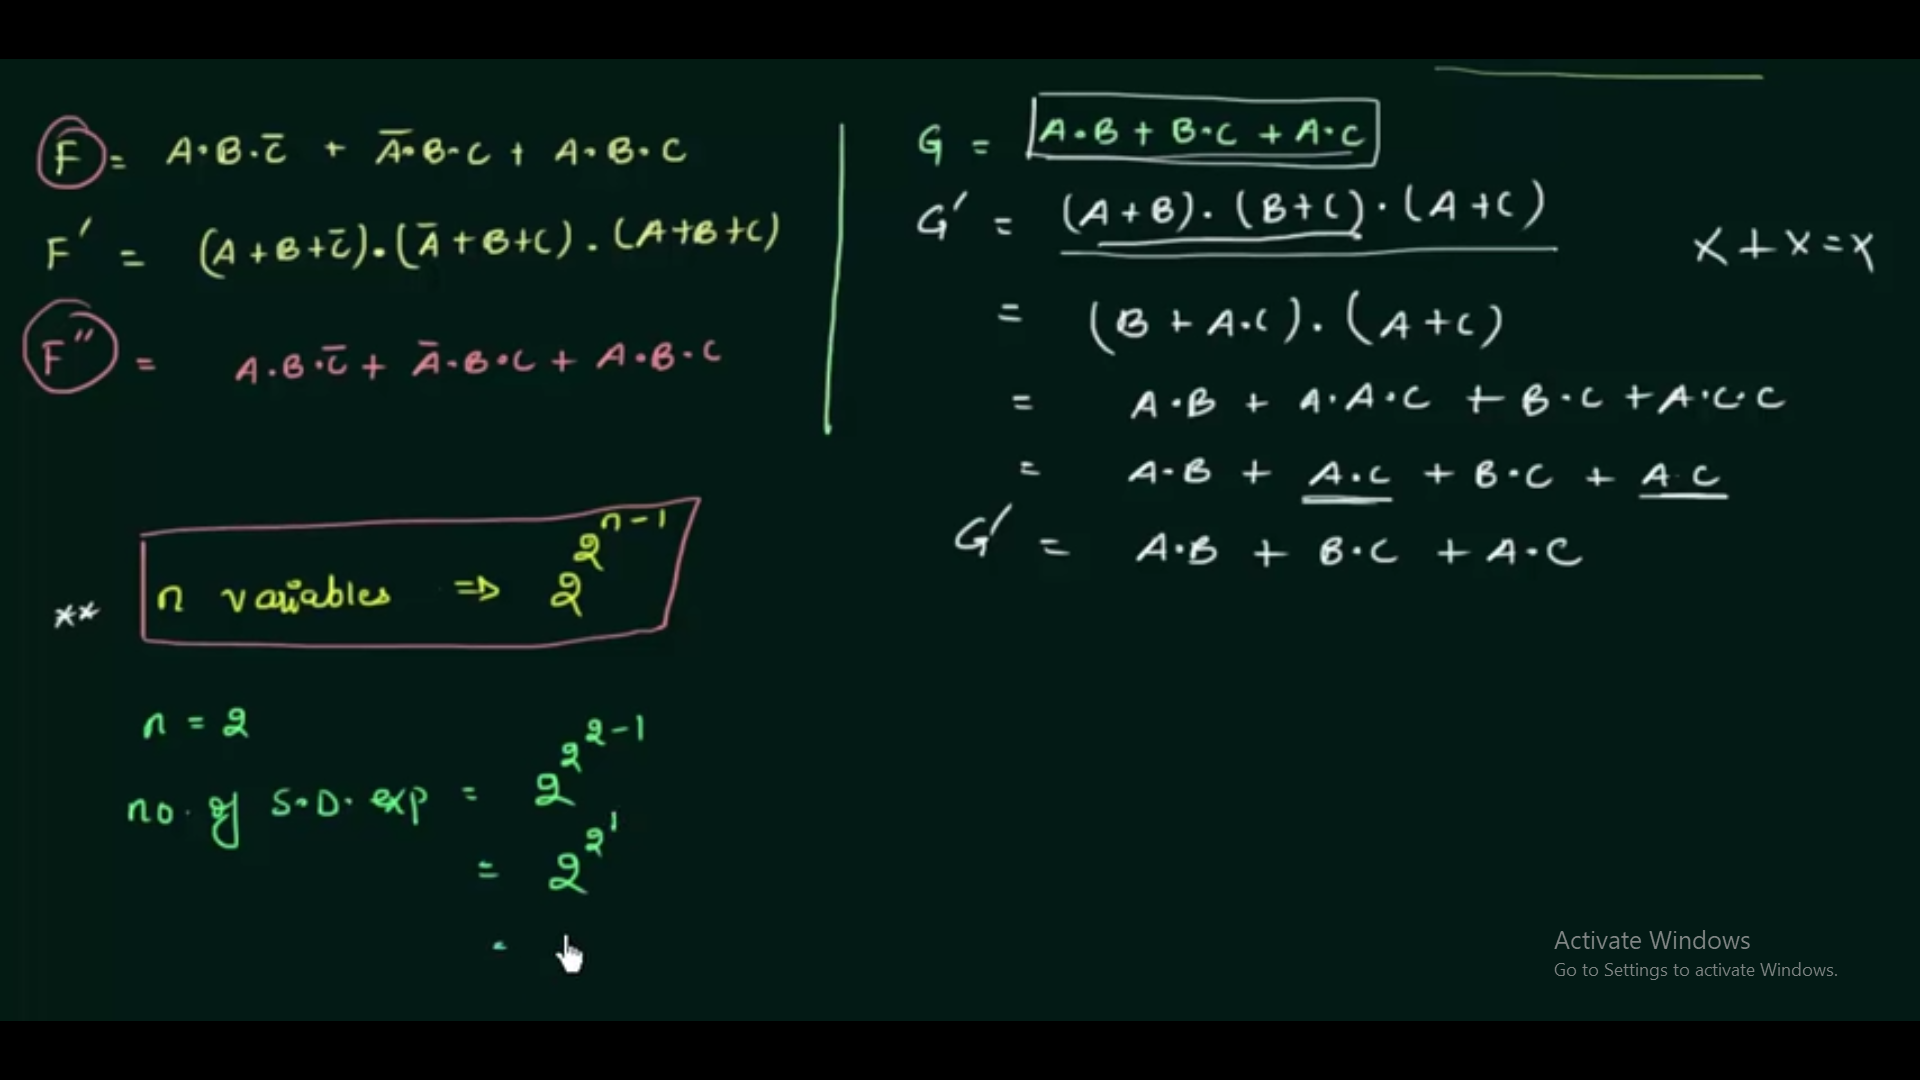 F = A·B·C̅ + A̅·B·C + A·B·C
F′ = (A+B+C̅)·(A̅+B+C)·(A+B+C)
F″ = A·B·C̅ + A̅·B·C + A·B·C
** n variables ⇒ 2^2^n-1
n = 2
no. of S.D. exp = 2^2^2-1
= 2^2^1
=
G = A·B + B·C + A·C
G′ = (A+B)·(B+C)·(A+C)
X + X = X
= (B + A·C)·(A+C)
= A·B + A·A·C + B·C + A·C·C
= A·B + A·C + B·C + A C
G′ = A·B + B·C + A·C
Activate Windows
Go to Settings to activate Windows.